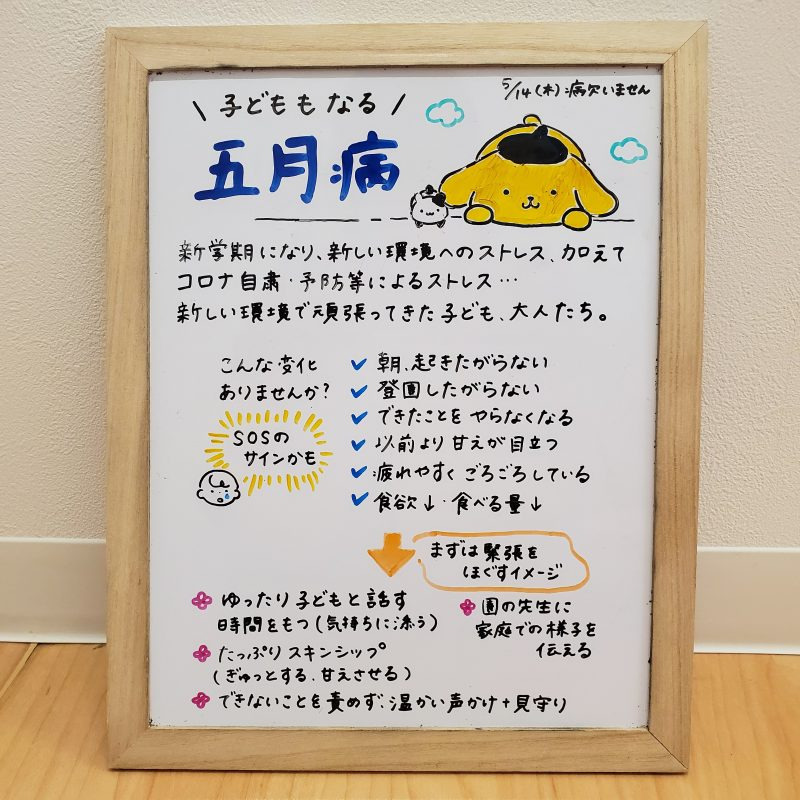 5/14(木):病欠いません
\ 子どももなる /
五月病
新学期になり、新しい環境へのストレス、加えて
コロナ自粛・予防等によるストレス…
新しい環境で頑張ってきた子ども、大人たち。
こんな変化
ありませんか?
SOSの
サインかも
✓ 朝、起きたがらない
✓ 登園したがらない
✓ できたことをやらなくなる
✓ 以前より甘えが目立つ
✓ 疲れやすくごろごろしている
✓ 食欲↓・食べる量↓
まずは緊張を
ほぐすイメージ
ゆったり子どもと話す
時間をもつ(気持ちに添う)
たっぷりスキンシップ
(ぎゅっとする、甘えさせる)
できないことを責めず、温かい声かけ+見守り
園の先生に
家庭での様子を
伝える